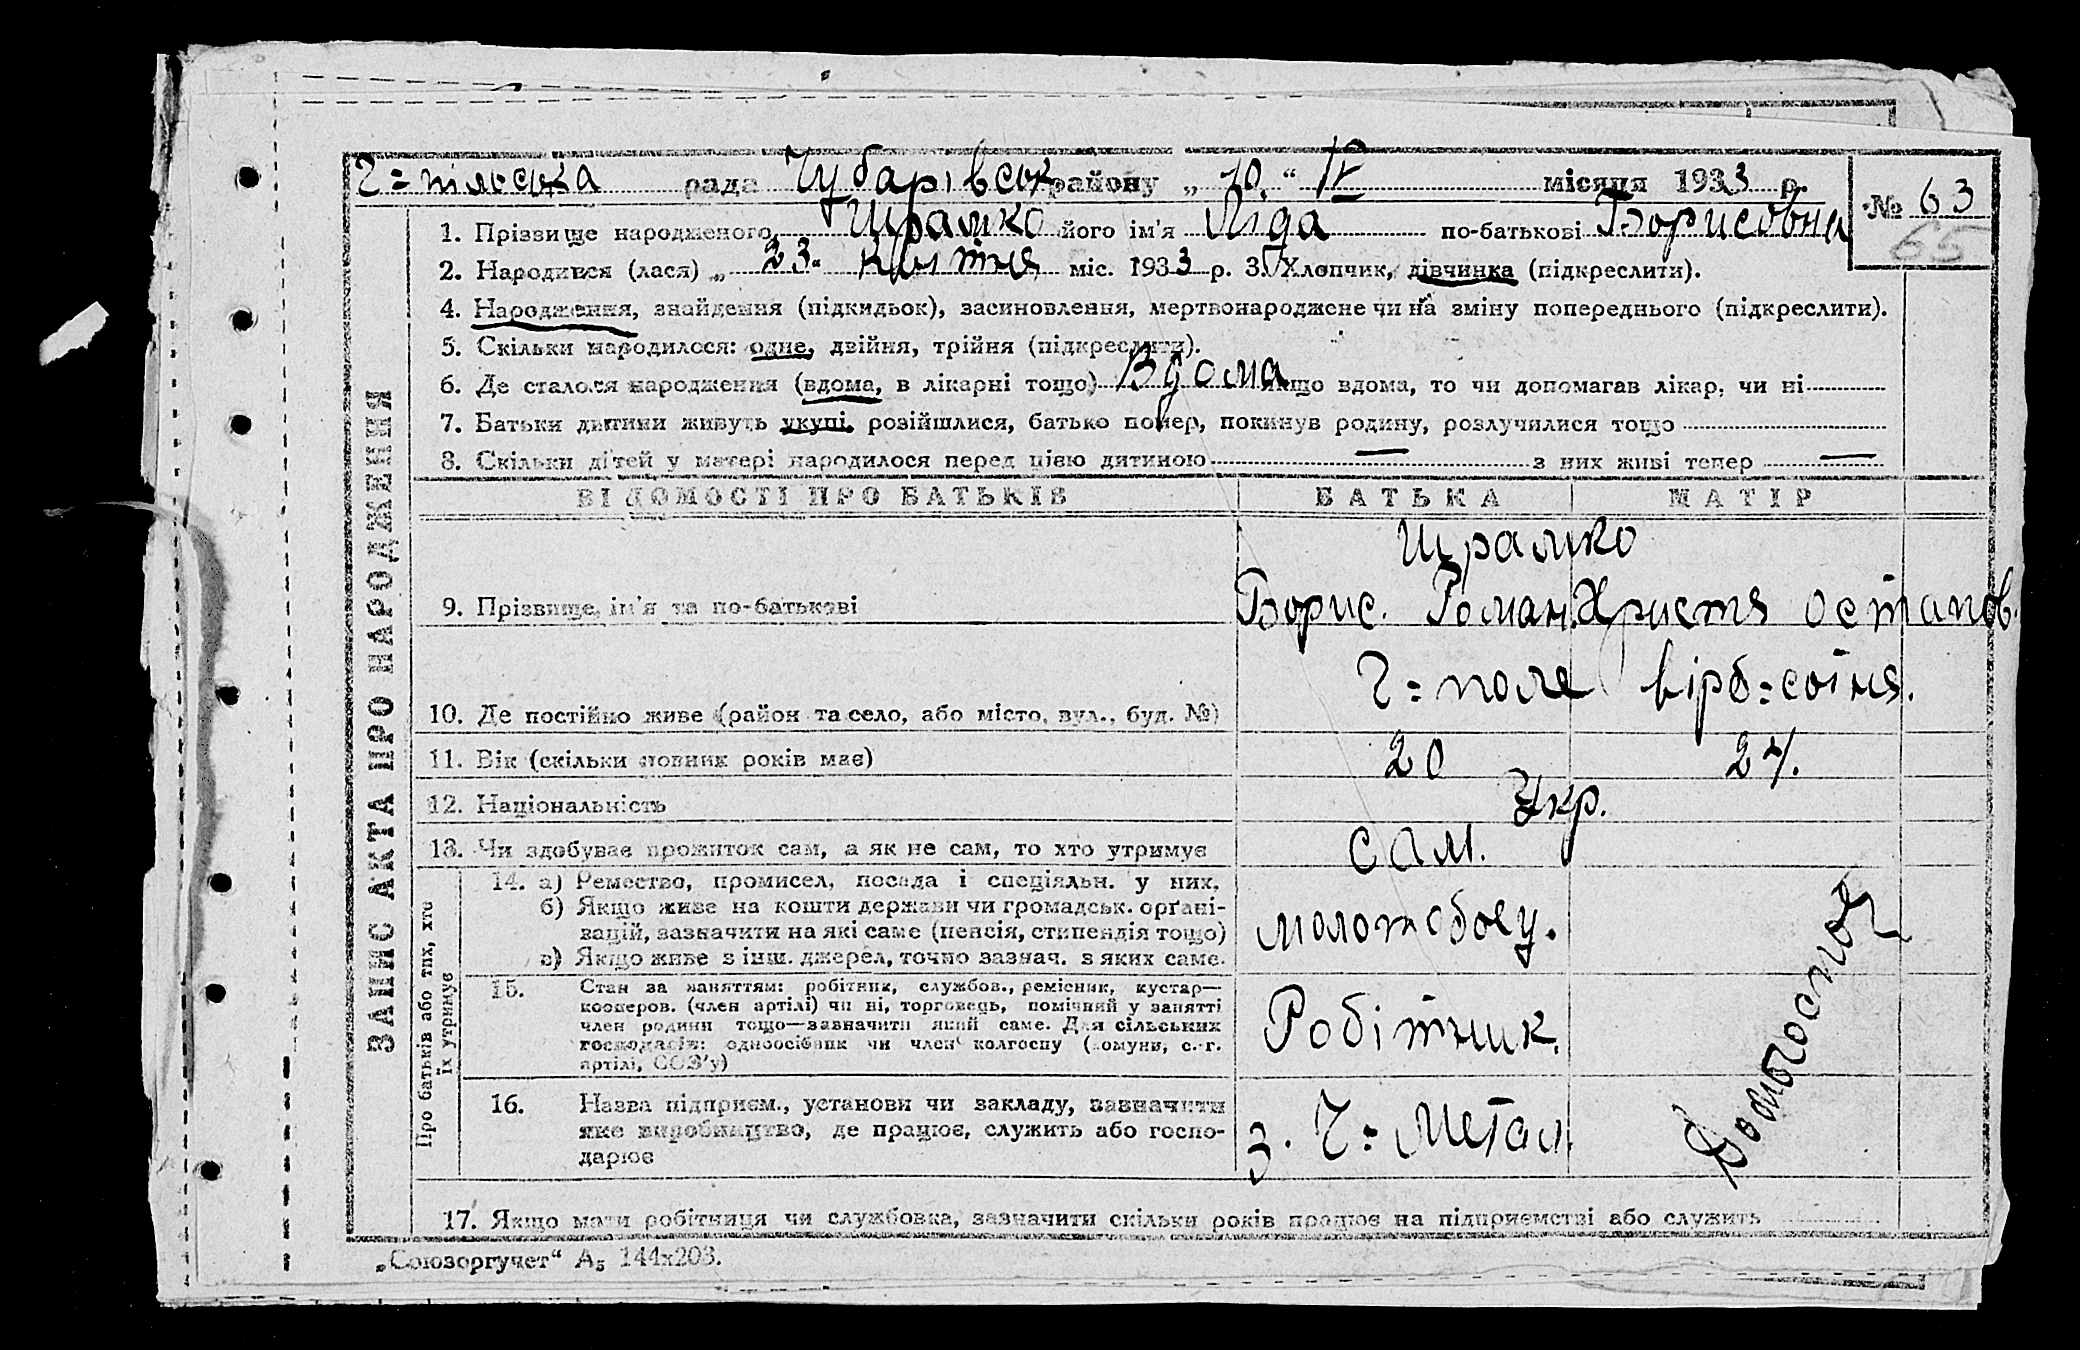 Г=пільська рада Чубарівськ району „ 10. “ IV місяця 1933 р.
№ 63
65
1. Прізвище народженого Шрамко його ім'я Ліда по-батькові Борисовна
2. Народився (лася) „ 23 “ квітня міс. 1933 р. 3. Хлопчик, дівчинка (підкреслити).
4. Народження, знайдення (підкидьок), засиновлення, мертвонароджене чи на зміну попереднього (підкреслити).
5. Скільки народилося: одне, двійня, трійня (підкреслити).
6. Де сталося народження (вдома, в лікарні тощо) Вдома якщо вдома, то чи допомагав лікар, чи ні
7. Батьки дитини живуть укупі, розійшлися, батько помер, покинув родину, розлучилися тощо
8. Скільки дітей у матері народилося перед цією дитиною — з них живі тепер —
ЗАПИС АКТА ПРО НАРОДЖЕННЯ
ВІДОМОСТІ ПРО БАТЬКІВ БАТЬКА МАТІР
Шрамко
9. Прізвище, ім'я та по-батькові Борис. Роман. Христя Остапов.
10. Де постійно живе (район та село, або місто, вул., буд. №) Г=поле
11. Вік (скільки повних років має) 20 24.
12. Національність Укр.
13. Чи здобуває прожиток сам, а як не сам, то хто утримує сам.
Про батьків або тих, хто їх утримує
14. а) Ремество, промисел, посада і спеціяльн. у них,
б) Якщо живе на кошти держави чи громадськ. органі-
зацій, зазначити на які саме (пенсія, стипендія тощо)
в) Якщо живе з інш. джерел, точно зазнач. з яких саме.
молотобоец.
15. Стан за заняттям: робітник, службов., ремісник, кустар—
кооперов. (член артілі) чи ні, торговець, помічний у занятті
член родини тощо—зазначити який саме. Для сільських
господарів: одноосібник чи член колгоспу (комуни, с.-г.
артілі, СОЗ'у)
Робітник.
16. Назва підприєм., установи чи закладу, зазначити
яке виробництво, де працює, служить або госпо-
дарює
з. Г= Метал.
17. Якщо мати робітниця чи службовка, зазначити скільки років працює на підприємстві або служить
„Союзоргучет“ А5 144x203.